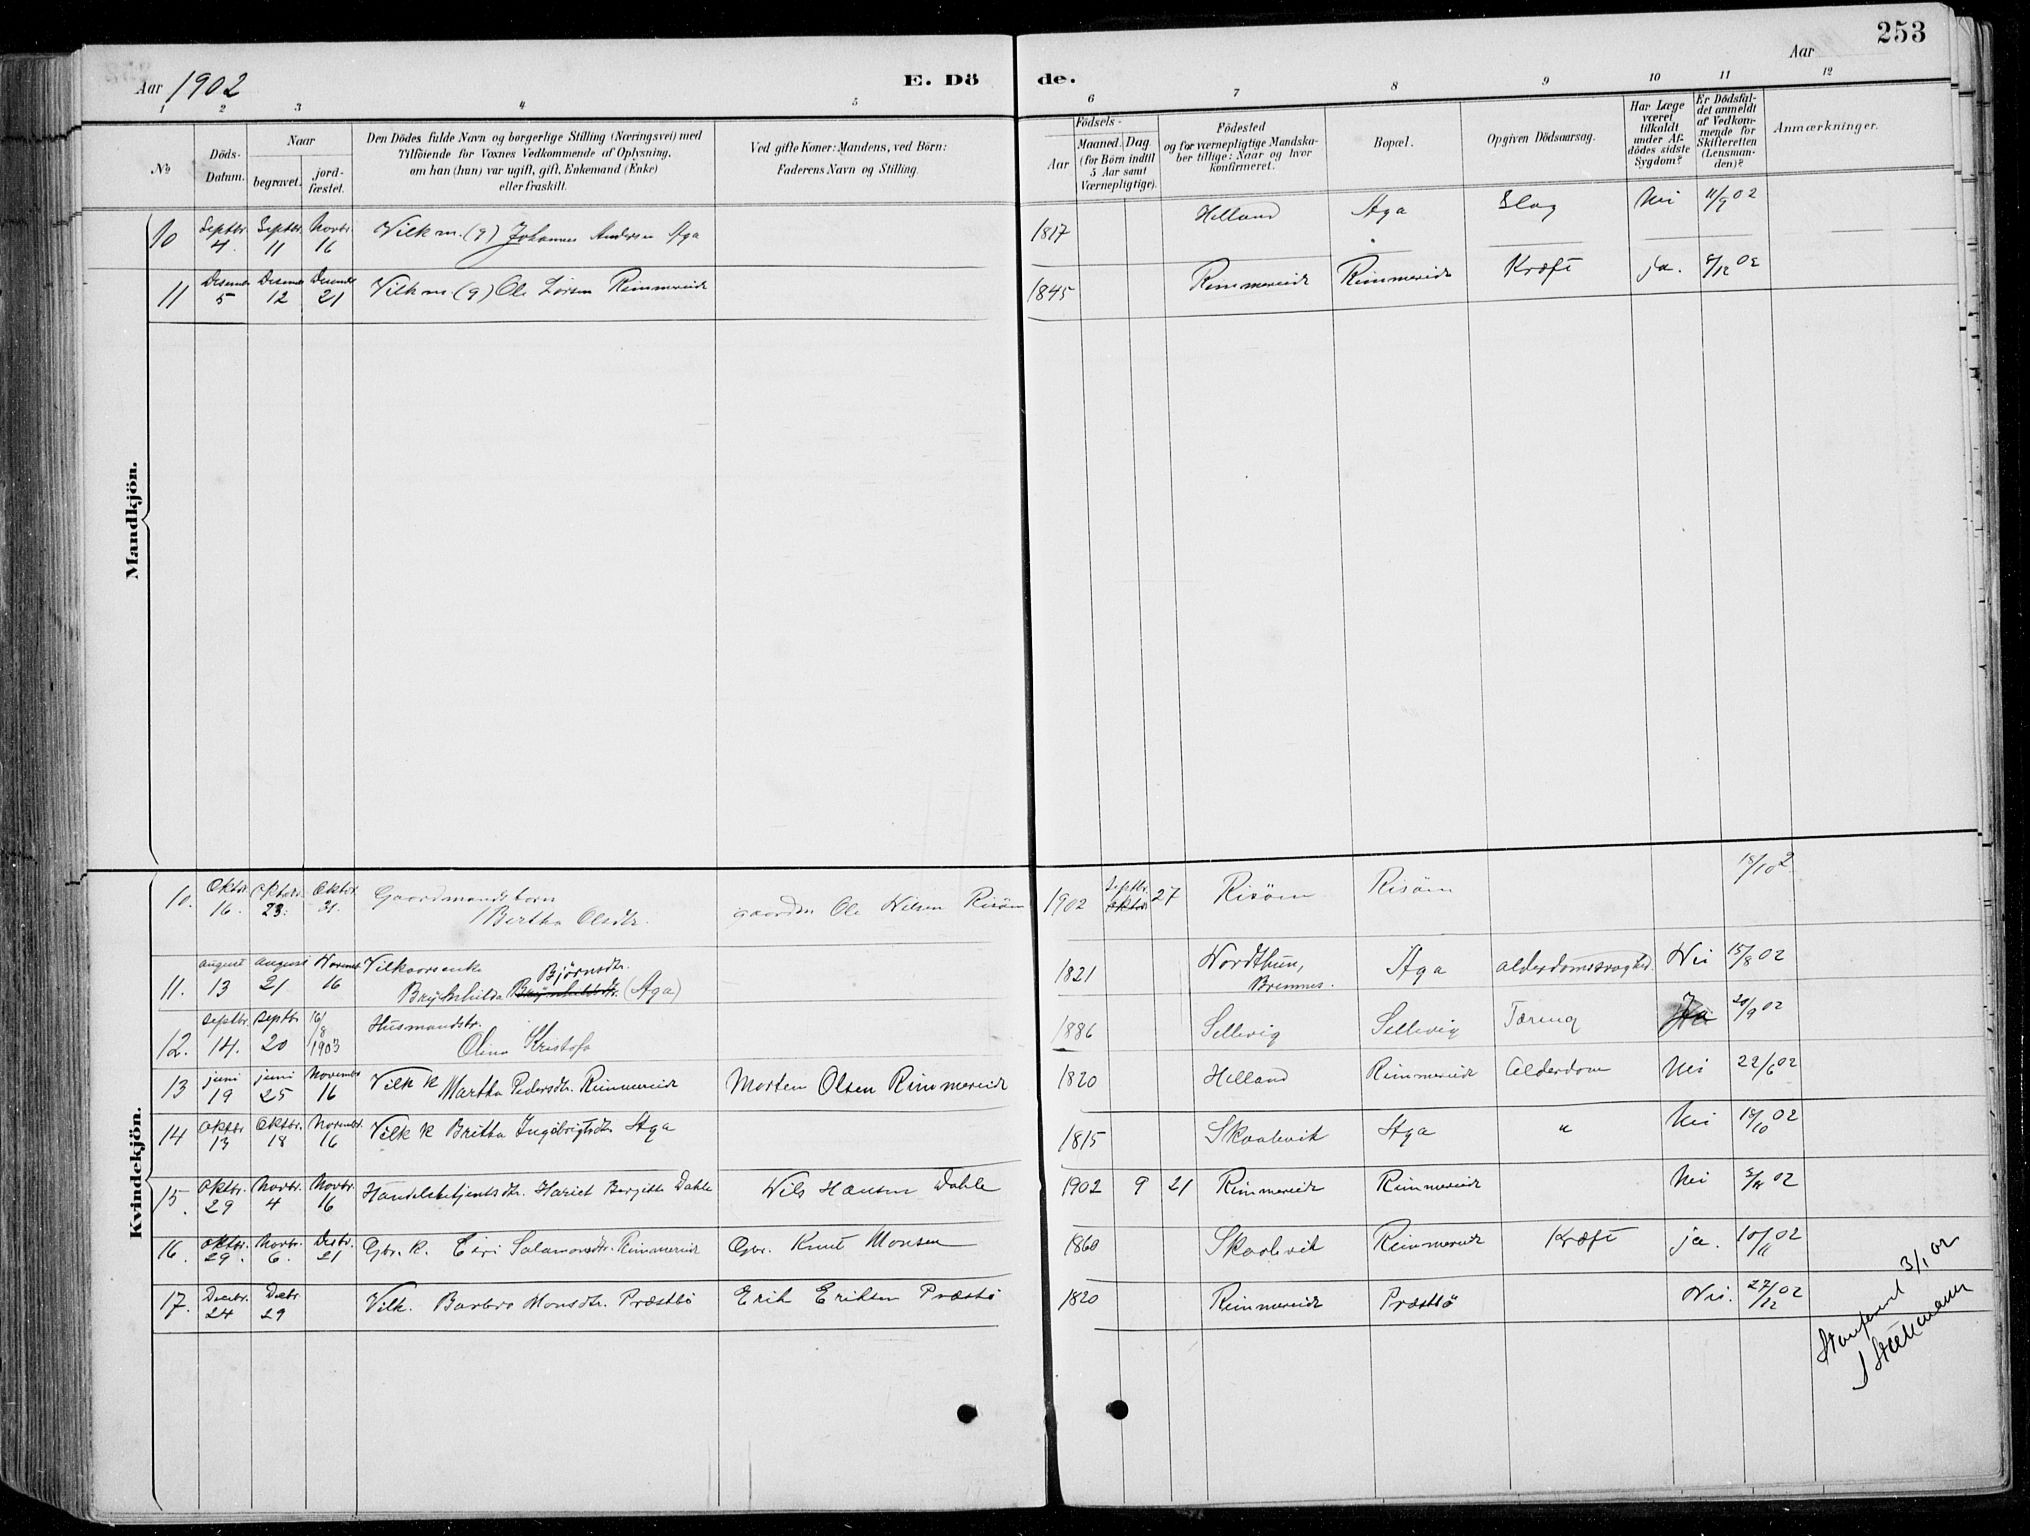 253
Aar 1902
E. Dö de.
Aar
1 2 3 4 5 6 7 8 9 10 11 12
No
Döds-Datum.
Naar
begravet.
jord-fæstet.
Den Dödes fulde Navn og borgerlige Stilling (Næringsvei) med
Tilföiende for Voxnes Vedkommende af Oplysning,
om han (hun) var ugift, gift, Enkemand (Enke)
eller fraskilt.
Ved gifte Koner: Mandens, ved Börn:
Faderens Navn og Stilling.
Födsels-
Aar
Maaned. Dag
(for Börn indtil
5 Aar samt
Værnepligtige).
Födested
og for værnepligtige Mandska-
ber tillige: Naar og hvor
konfirmeret.
Bopæl.
Opgiven Dödsaarsag.
Har Læge
været
tilkaldt
under Af-
dödes sidste
Sygdom?
Er Dödsfal-
det anmeldt
af Vedkom-
mende for
Skifteretten
(Lensman-
den)?
Anmærkninger.
Mandkjön.
10 Septbr. 4. Septbr. 11 Novbr. 16 Vilkm. (g) Johannes Andersen Aga 1817 Helland Aga Slag Nei 11/9 02
11 Desember 5 Desember 12 Desember 21 Vilkm. (g) Ole Larsen Rimmereide 1845 Rimmereide Rimmereide Kræft ja. 8/12 02
Kvindekjön.
10. Oktbr. 16. Oktbr. 23. Oktbr. 31. Gaardmandsbarn Bertha Olsdtr. gaardm Ole Nilsen Risöm 1902 Septbr. 27 Risöm Risöm 18/10 2
11. august 13 august 21 Novmbr 16 Vilkaarsenke Brynhilda Björnsdtr. (Aga) 1821 Nordthun, Bremnes. Aga alderdomssvaghed. Nei 15/8 02
12. Septbr. 14. Septbr. 20 16/8 1903 Husmandsdtr. Olina Kristofa 1886 Sellevig Sellevig Tæring Ja 20/9 02
13 juni 19 juni 25 November 16 Vilk k Martha Pedersdtr. Rimmereide Morten Olsen Rimmereide 1820 Helland Rimmereide Alderdom Nei 22/6 02
14 Oktbr 13 Oktbr. 18 November. 16 Vilk k Britta Ingebrigtsdtr Aga 1815 Skaalevik Aga " Nei 18/10 02
15. Oktbr. 29 Novbr. 4 Novbr. 16 Handelsbetjentsdtr. Hariet Bergitte Dahle Nils Hansen Dahle 1902 9 21 Rimmereide Rimmereide Nei 3/11 02
16. Oktbr. 29. Novbr. 6. Desbr. 21 Gbr. k. Siri Salamonsdtr. Rimmereide Gbr. Knut Monsen 1860 Skaalevik Rimmereide Kræft ja. 10/11 02
17. Decbr. 24 Decbr 29 Vilk. Barbro Monsdtr. Præstbö Erik Eriksen Præstbö 1820 Rimmereide Præstbö Nei. 27/12 02
3/1 02